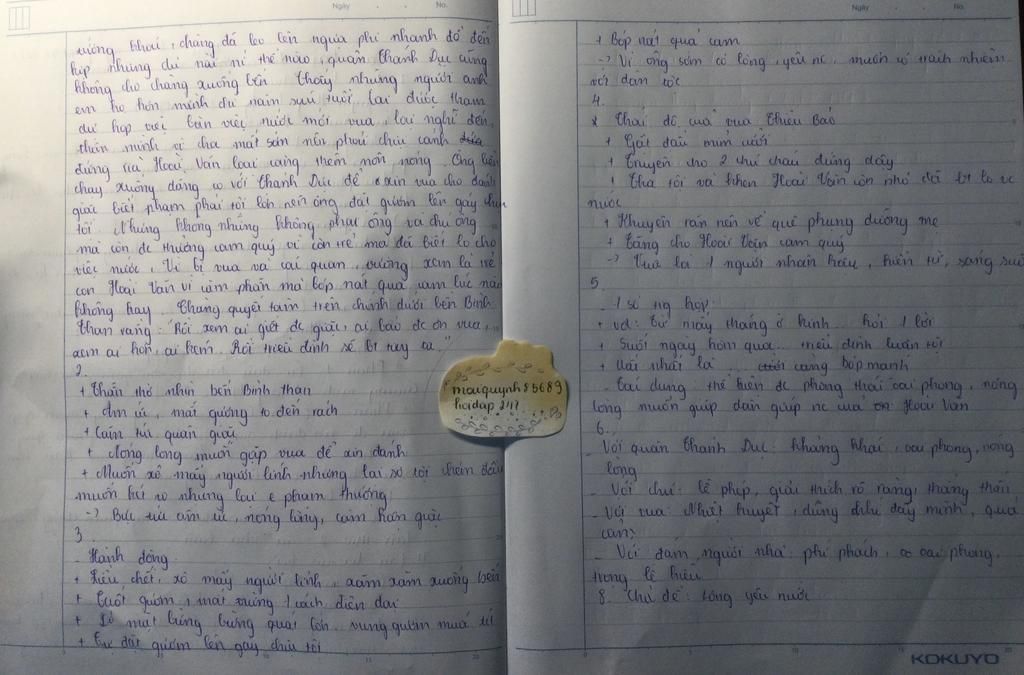 Ngày . . No.
vương khai, chàng đã leo lên ngựa phi nhanh để đến
kịp nhưng dù nài nỉ thế nào, quân Thánh Dực cũng
không cho chàng xuống bến. Thấy những người anh
em họ hơn mình dù năm sáu tuổi lại được tham
dự họp việc bàn việc nước mới vua, lại nghĩ đến
thân mình vì cha mất sớm nên phải chịu cảnh
đứng rìa Hoài Văn loại càng thêm nôn nóng. Ông liền
chạy xuống dằng co với Thánh Dực để xin vua cho đánh
giặc biết phạm phải tội lớn nên ông đặt gươm lên gáy chịu
tội. Nhưng không những không phạt ông và chú ông
mà còn đc thưởng cam quý vì còn trẻ mà đã biết lo cho
việc nước. Vì bị vua và cái quan, vương xem là trẻ
con Hoài Văn vì căm phẫn mà bóp nát quả cam lúc nào
không hay. Chàng quyết tâm trên chính dưới bến Bình
Than rằng: "Rồi xem ai giết đc giặc, ai báo đc ơn vua,
xem ai hơn, ai kém. Rồi triều đình sẽ bt tay ta."
2.
+ Thẫn thờ nhìn bến Bình Than
+ Ấm ức, mắt giương to đến rách
+ Căm tức quân giặc
+ Nóng lòng muốn gặp vua để xin đánh
+ Muốn xô mấy người lính nhưng lại sợ tội chém đầu
muốn hét to nhưng lại e phạm thượng
-> Bực tức căm ức, nóng lòng, căm hờn giặc
3.
- Hành động
+ Liều chết, xô mấy người lính, xăm xăm xuống bến
+ Tuốt gươm, mắt trừng 1 cách điên dại
+ Đỏ mặt bừng bừng quát lớn, vung gươm múa tít
+ Tự đặt gươm lên gáy chịu tội
maiquynh85689
hoidap 247
Ngày . . No.
+ Bóp nát quả cam
-> Vì ông sớm có lòng yêu nc, muốn có trách nhiệm
với dân tộc
4.
* Thái độ của vua Thiệu Bảo
+ Gật đầu mỉm cười
+ Truyền cho 2 chú cháu đứng dậy
+ Tha tội và khen Hoài Văn còn nhỏ đã bt lo vc
nước
+ Khuyên răn nên về quê phụng dưỡng mẹ
+ Tặng cho Hoài Văn cam quý
-> Vua là 1 người nhân hậu, hiền từ, sáng suốt
5.
- 1 số trg hợp:
+ vd: Từ mấy tháng ở kinh... hỏi 1 lời
+ Suốt ngày hôm qua... triều đình luận tội
+ Hai nhất là ... càng bóp mạnh
- Tác dụng: thể hiện đc phong thái oai phong, nóng
lòng muốn giúp dân giúp nc của Hoài Văn
6.
- Với quân Thánh Dực: khảng khái, oai phong, nóng
lòng
- Với chú: lễ phép, giải thích rõ ràng, thẳng thắn
- Với vua: Nhiệt huyết, dũng đầy mình, quả
cảm
- Với đám người nhà: phí phách, có oai phong,
trong lễ hiếu
8. Chủ đề: Lòng yêu nước
KOKUYO